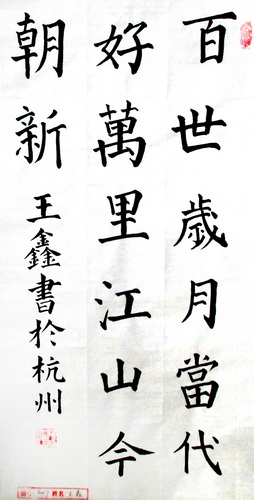 百世歲月當代
好萬里江山今
朝新
王鑫書於杭州